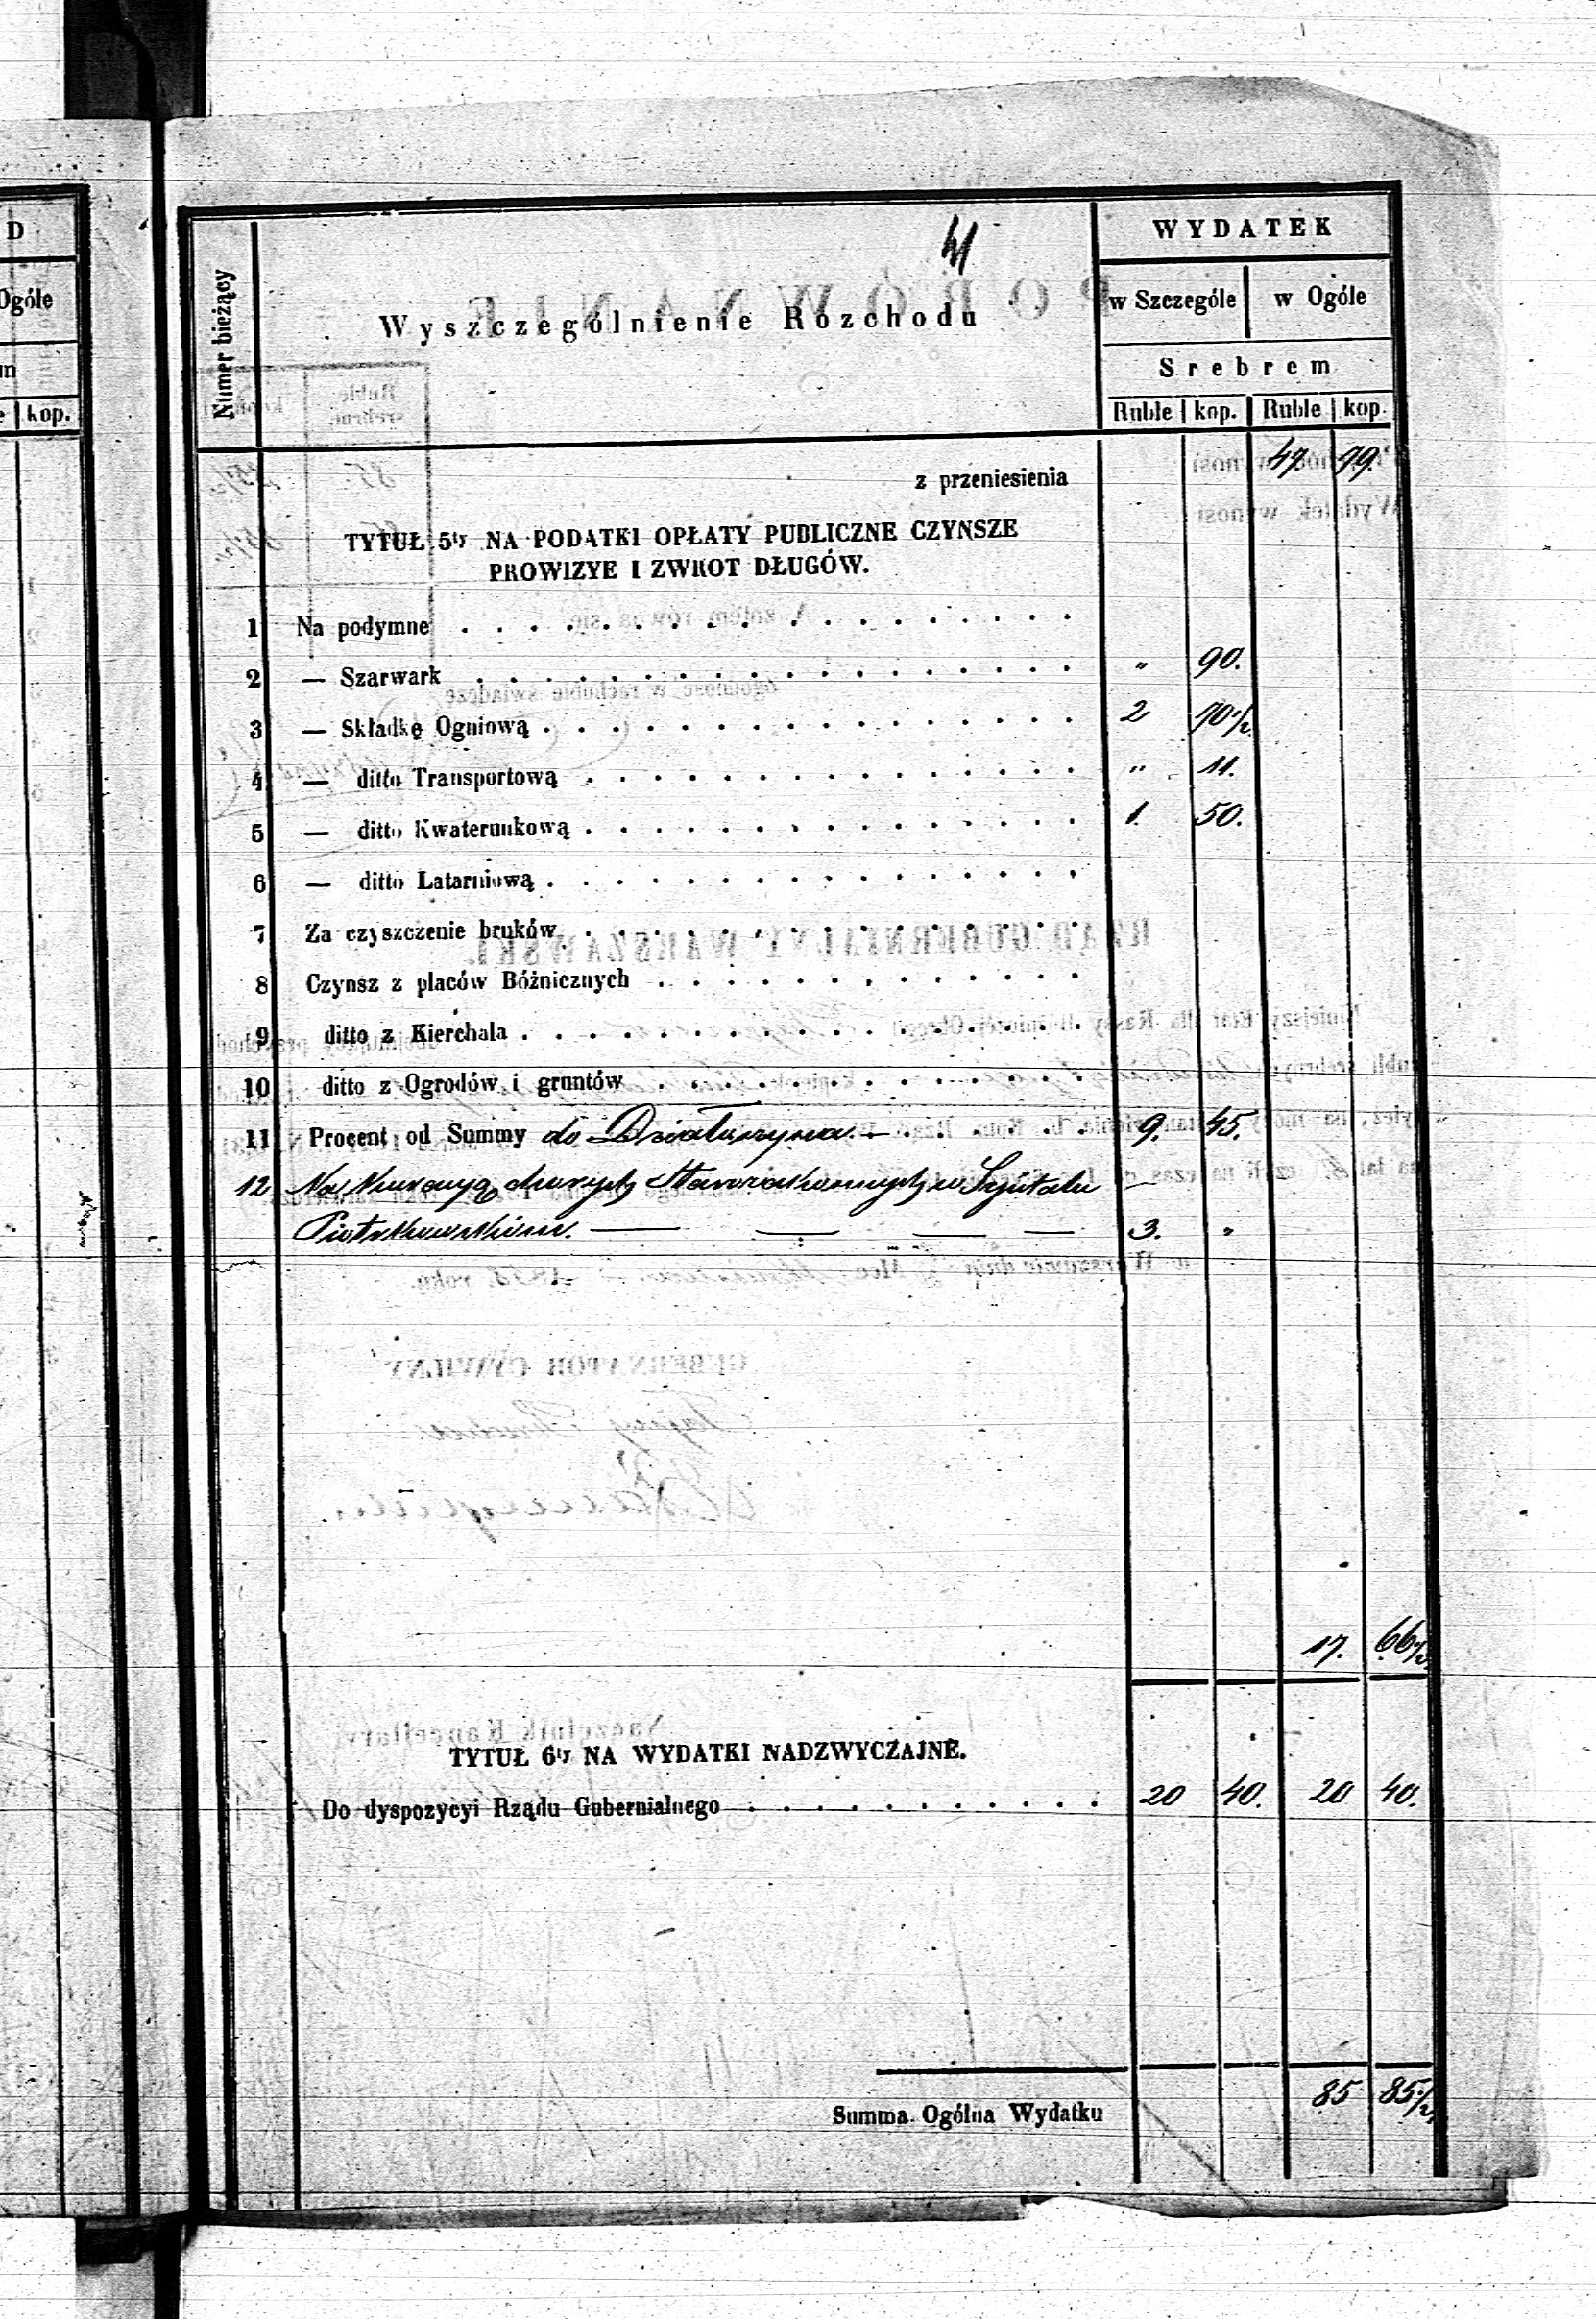 D
Ogóle
kop.
Numer bieżący
Wyszczególnienie Rozchodu
WYDATEK
w Szczególe w Ogóle
Srebrem
Ruble kop. Ruble kop.
z przeniesienia 47. 79.
TYTUŁ 5ty NA PODATKI OPŁATY PUBLICZNE CZYNSZE
PROWIZYE I ZWROT DŁUGÓW.
1 Na podymne
2 — Szarwark „ 90.
3 — Składkę Ogniową 2 70 1/2
4 — ditto Transportową „ 11.
5 — ditto Kwaterunkową 1. 50.
6 — ditto Latarniową
7 Za czyszczenie bruków
8 Czynsz z placów Bóżnicznych
9 ditto z Kierchala
10 ditto z Ogrodów i gruntów
11 Procent od Summy do Działoszyna 9. 45.
12 Na Kuracyą chorych Starozakonnych w Szpitalu
Piotrkowskim. 3. „
17. 66 1/2
TYTUŁ 6ty NA WYDATKI NADZWYCZAJNE.
Do dyspozycyi Rządu Gubernialnego 20 40. 20 40.
Summa Ogólna Wydatku 85 85 1/2